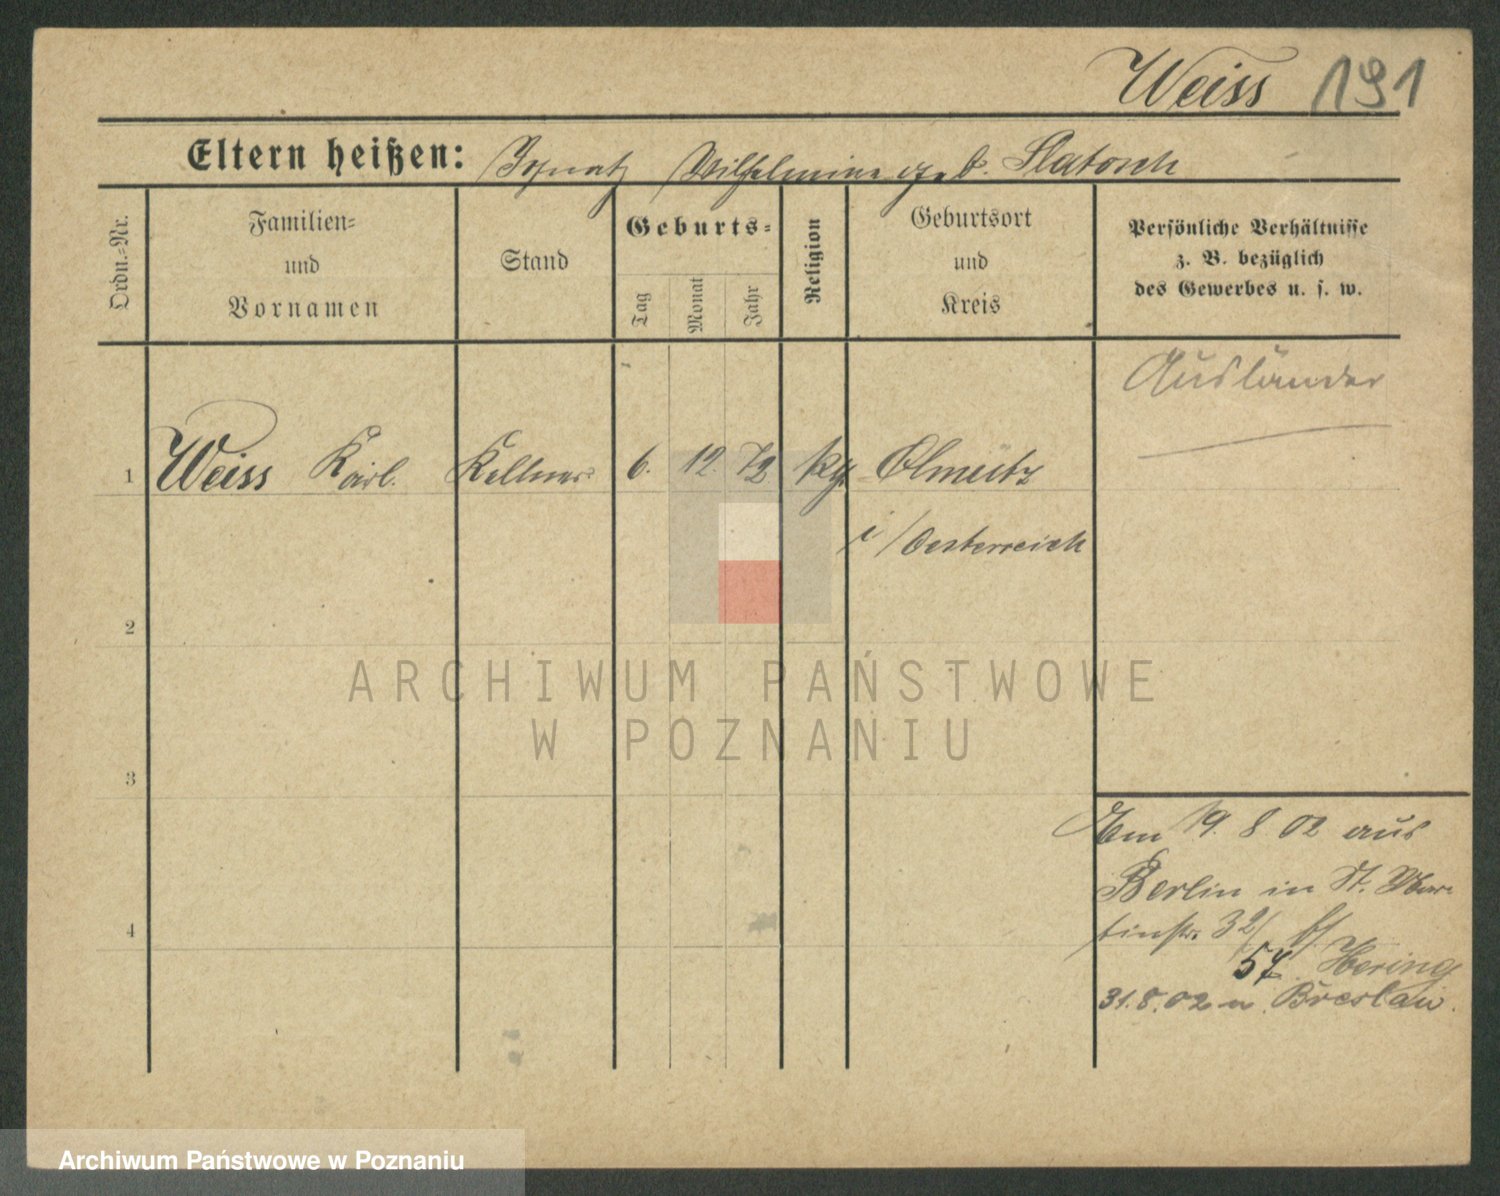 Weiss 191
Eltern heißen: Ignatz Wilhelmine geb. Slatosch
Ordn.-Nr.
Familien-
und
Vornamen
Stand
Geburts-
Tag
Monat
Jahr
Religion
Geburtsort
und
Kreis
Persönliche Verhältnisse
z. B. bezüglich
des Gewerbes u. s. w.
Ausländer
1 Weiss Karl. Kellner 6. 12. 72 kg. Olmütz
i/Oesterreich
2
3
4
19. 8. 02 aus
Berlin in St. Mar-
tinstr. 32/
57 Hering
31.8.02 n. Breslau.
ARCHIWUM PAŃSTWOWE
W POZNANIU
Archiwum Państwowe w Poznaniu